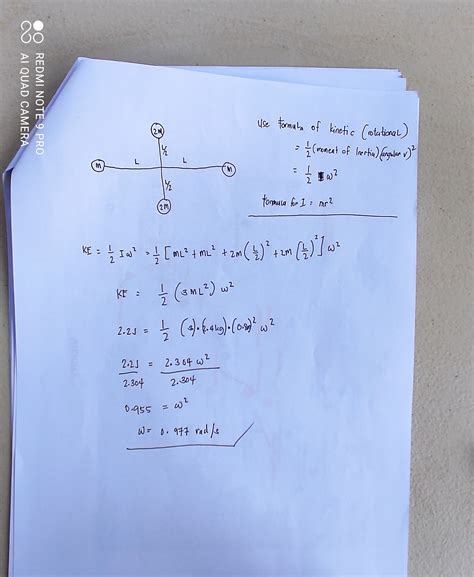 REDMI NOTE 9 PRO
AI QUAD CAMERA
2M
L/2
M
L
L
M
L/2
2M
Use formula of kinetic (rotational)
= 1/2 (moment of Inertia)(angular v)²
= 1/2 I ω²
formula for I = mr²
KE = 1/2 I ω² = 1/2 [ mL² + mL² + 2m (L/2)² + 2m (L/2)² ] ω²
KE = 1/2 (3ML²) ω²
2.2J = 1/2 (3)·( kg)·( )² ω²
2.2J = 2.304 ω²
2.304 2.304
0.955 = ω²
ω = 0.977 rad/s